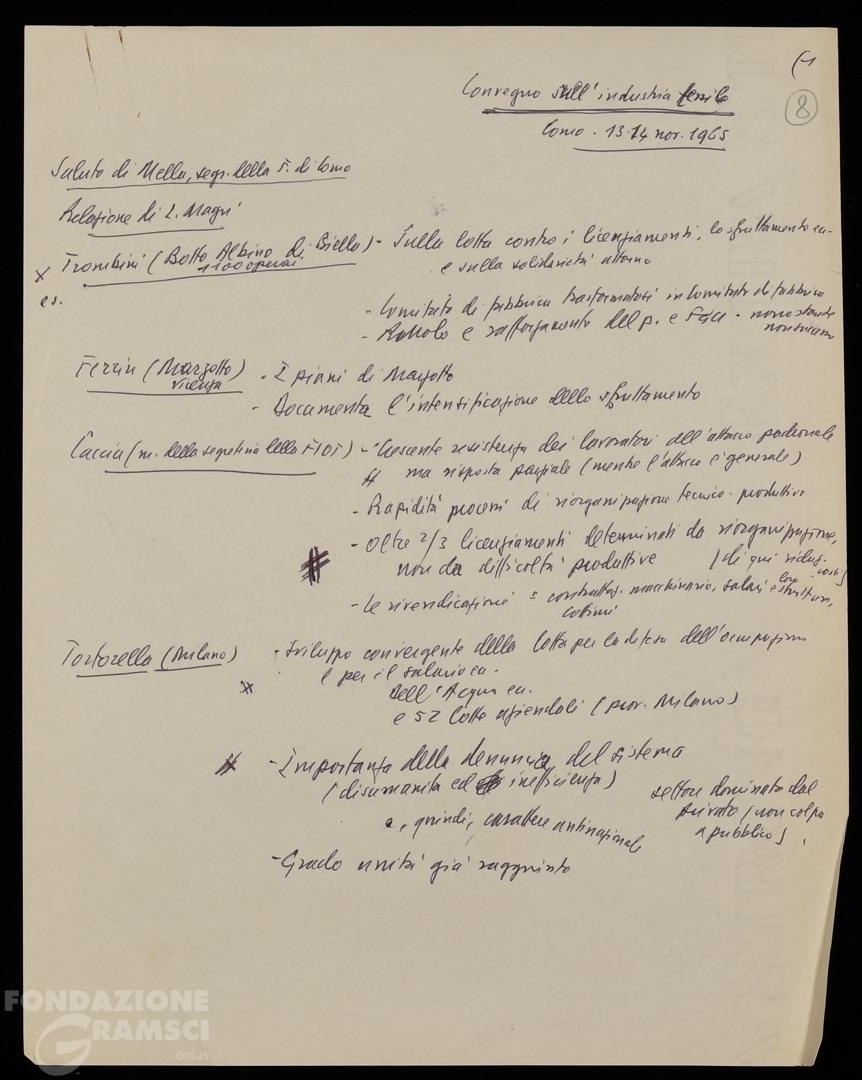 (1
8
Convegno sull'industria tessile
Como - 13-14 nov. 1965
Saluto di Mella, segr. della F. di Como
Relazione di L. Magri
x Trombini (Botto Albino di Biella) - Sulla lotta contro i licenziamenti, lo sfruttamento ecc.
1100 operai
e sulla solidarietà attorno
es.
- Comitato di fabbrica trasformatosi in Comitato di fabbrica
- Ruolo e rafforzamento del p. e FGCI - nonostante
Ferrin (Marzotto) - I piani di Marzotto
Vicenza
- Documenta l'intensificazione dello sfruttamento
Caccia (m. della segreteria della FIOT) - Crescente resistenza dei lavoratori all'attacco padronale
# ma risposta parziale (mentre l'attacco è generale)
- Rapidità processi di riorganizzazione tecnico-produttiva
- Oltre 2/3 licenziamenti determinati da riorganizzazione,
# non da difficoltà produttive (di qui riduz. costi)
- Le rivendicazioni = contrattaz. macchinario, salari e loro struttura,
cottimi
Tortorella (Milano) - Sviluppo convergente della lotta per la difesa dell'occupazione
e per il salario ecc.
x Dell'Acqua ecc.
e 52 lotte aziendali (prov. Milano)
# - Importanza della denuncia del sistema
(disumanità ed inefficienza)
settore dominato dal
privato (non colpa
a pubblico)
e, quindi, carattere antinazionale
- Grado unità già raggiunto
FONDAZIONE
GRAMSCI
onlus